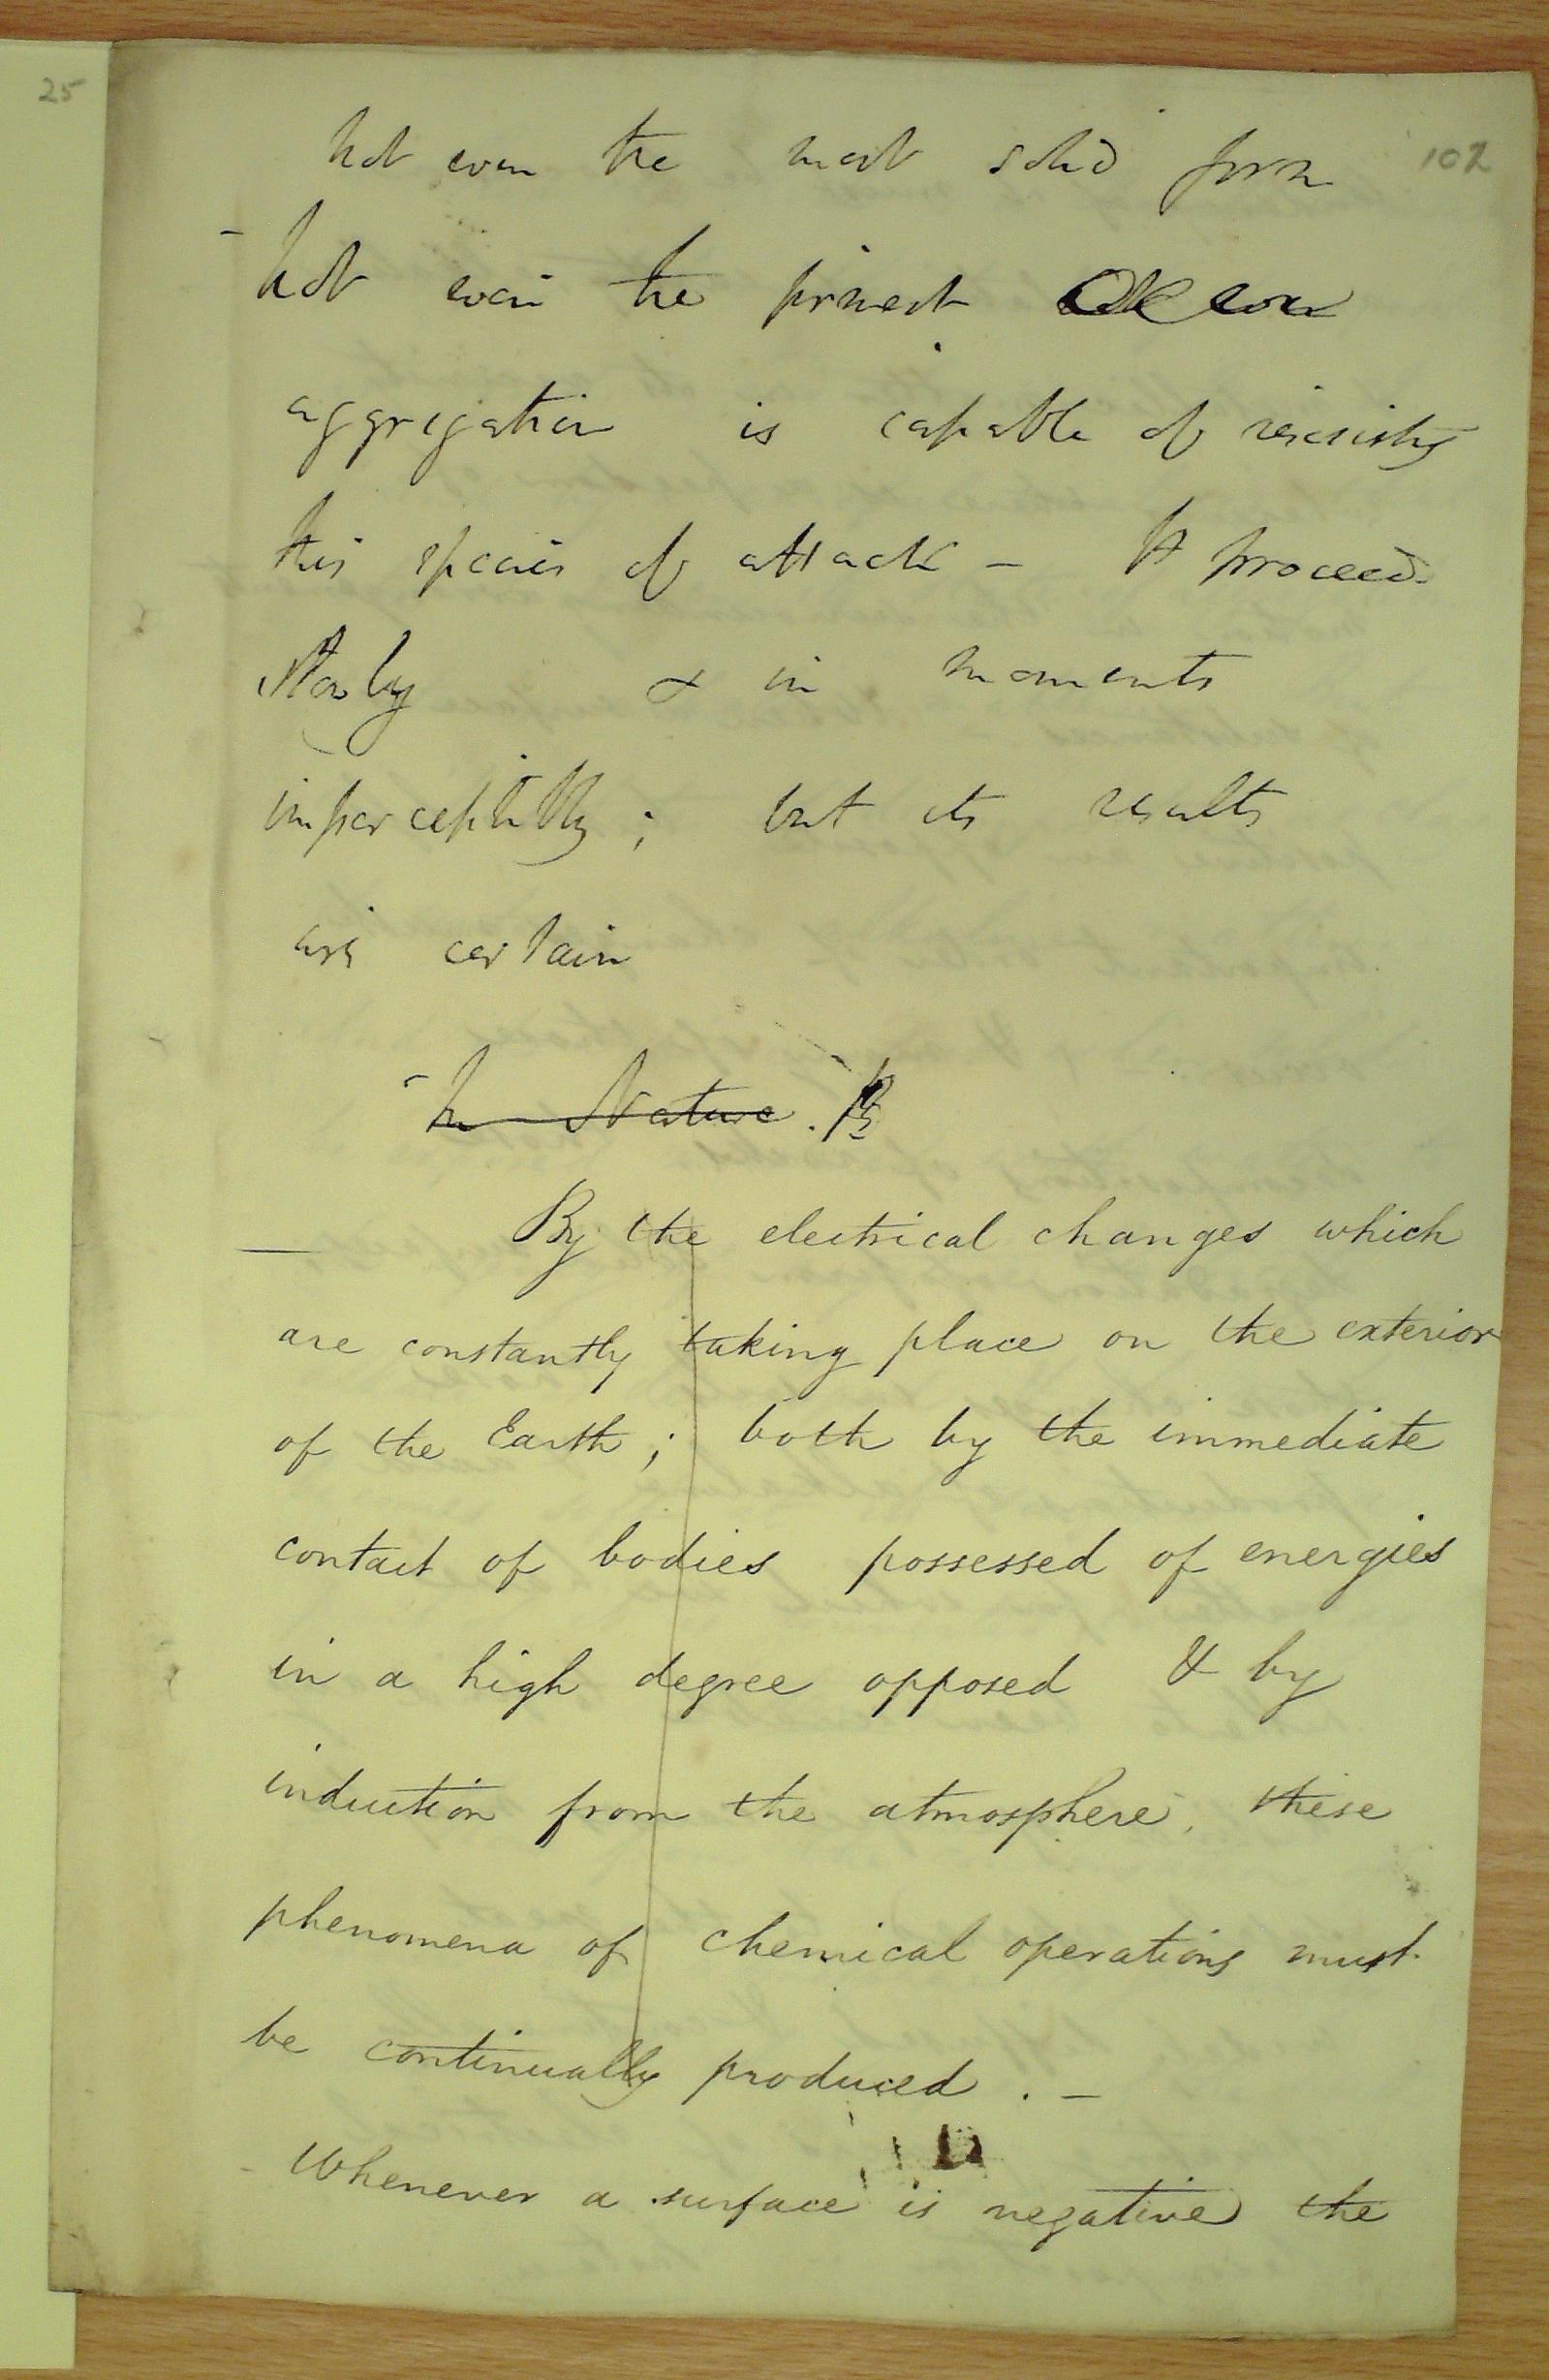 25
102
not even the most solid form
- not even the firmest
aggregation is capable of resisting
this species of attack - It proceeds
slowly & in moments
imperceptibly; but its results
are certain
- In Nature.
By the electrical changes which
are constantly taking place on the exterior
of the Earth; both by the immediate
contact of bodies possessed of energies
in a high degree opposed & by
induction from the atmosphere, these
phenomena of chemical operations must
be continually produced. -
- Whenever a surface is negative the